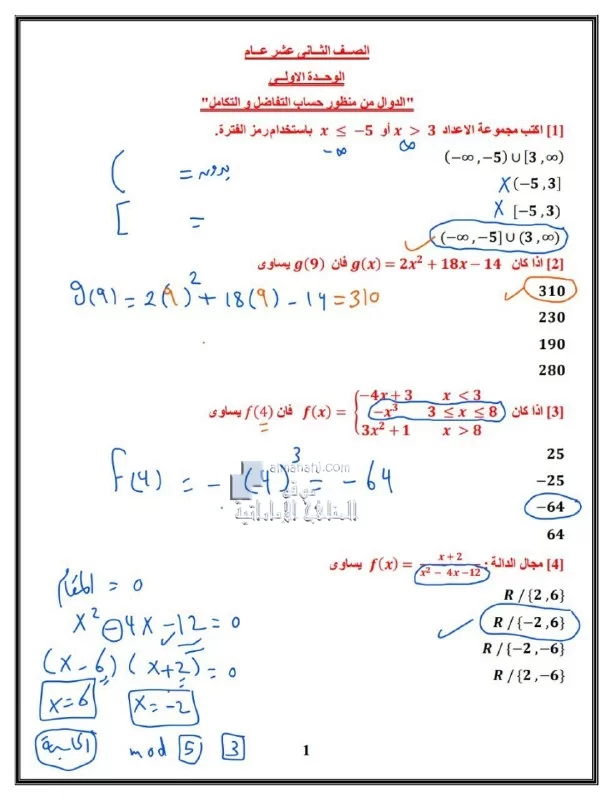 الصف الثانى عشر عام
الوحدة الاولى
"الدوال من منظور حساب التفاضل و التكامل"
[1] اكتب مجموعة الاعداد x > 3 أو x ≤ −5 باستخدام رمز الفترة.
−∞ ∞
(−∞ ,−5) ∪ [3 ,∞)
( = بدون
X (−5 ,3]
X [−5 ,3)
[ =
✓ (−∞ ,−5] ∪ (3 ,∞)
[2] اذا كان g(x) = 2x² + 18x − 14 فان g(9) يساوى
✓ 310
g(9) = 2(9)² + 18(9) − 14 = 310
230
190
280
[3] اذا كان f(x) = { −4x + 3 x < 3
−x³ 3 ≤ x ≤ 8 فان f(4) يساوى
3x² + 1 x > 8
25
almanahj.com
−25
f(4) = −(4)³ = −64
موقع
المناهج الإماراتية
−64
64
[4] مجال الدالة : f(x) = x + 2 / x² − 4x −12 يساوى
المقام = 0
R /{2 ,6}
x² − 4x − 12 = 0
✓ R /{−2 ,6}
R /{−2 ,−6}
(x − 6) (x + 2) = 0
R /{2 ,−6}
x = 6 x = −2
mod 5 3
1